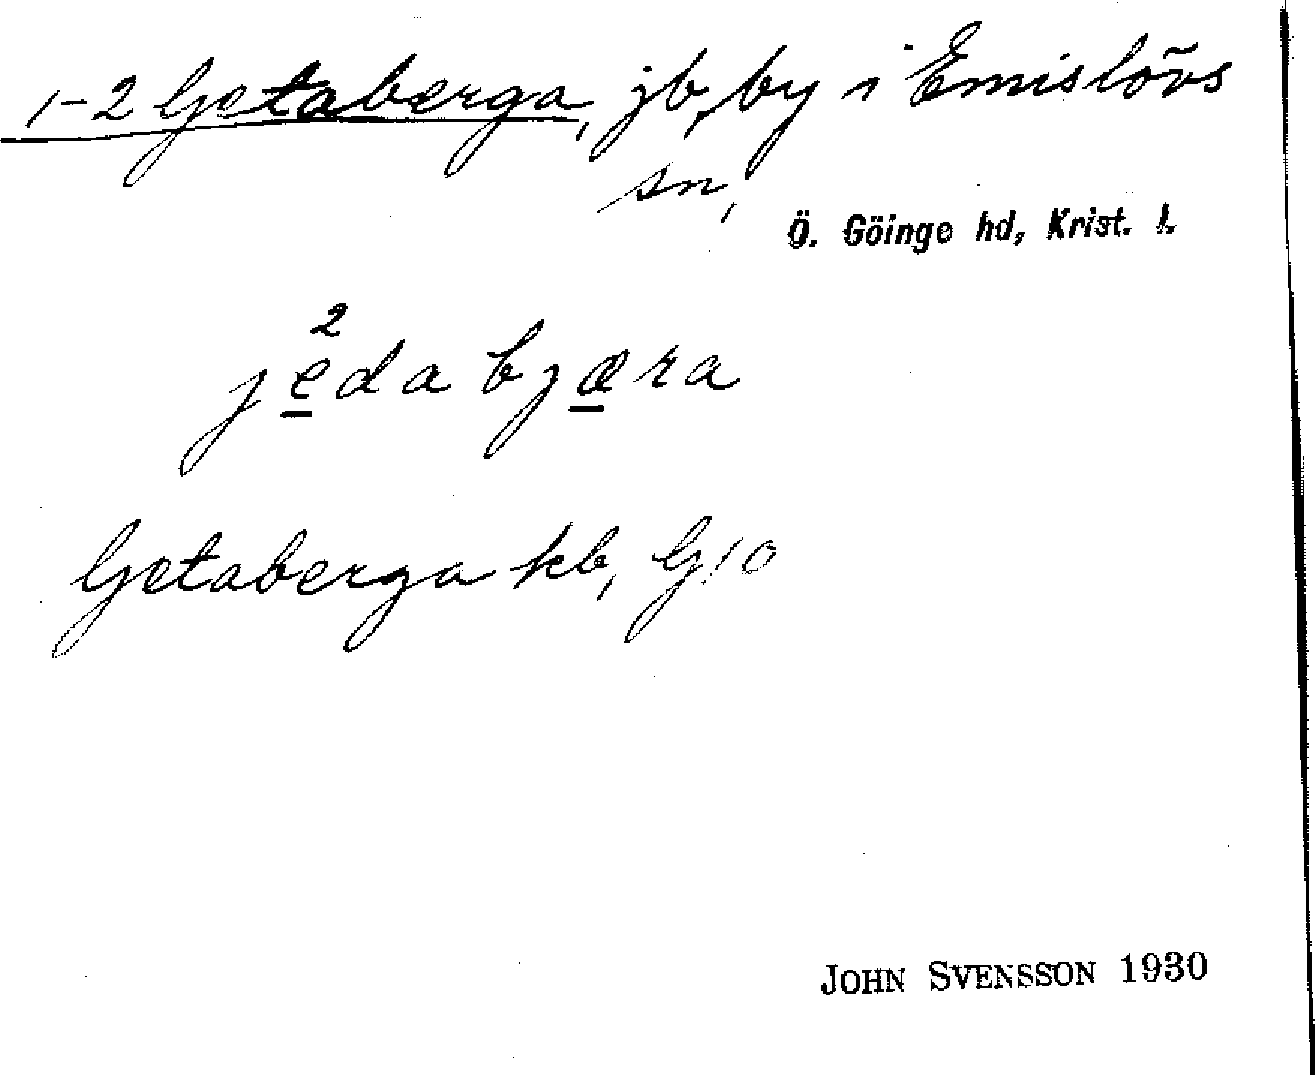 1-2 Getaberga, jb, by i Emislövs
sn,
Ö. Göinge hd, Krist. l.
2
jedabjæra
Getaberga kb, G10
JOHN SVENSSON 1930